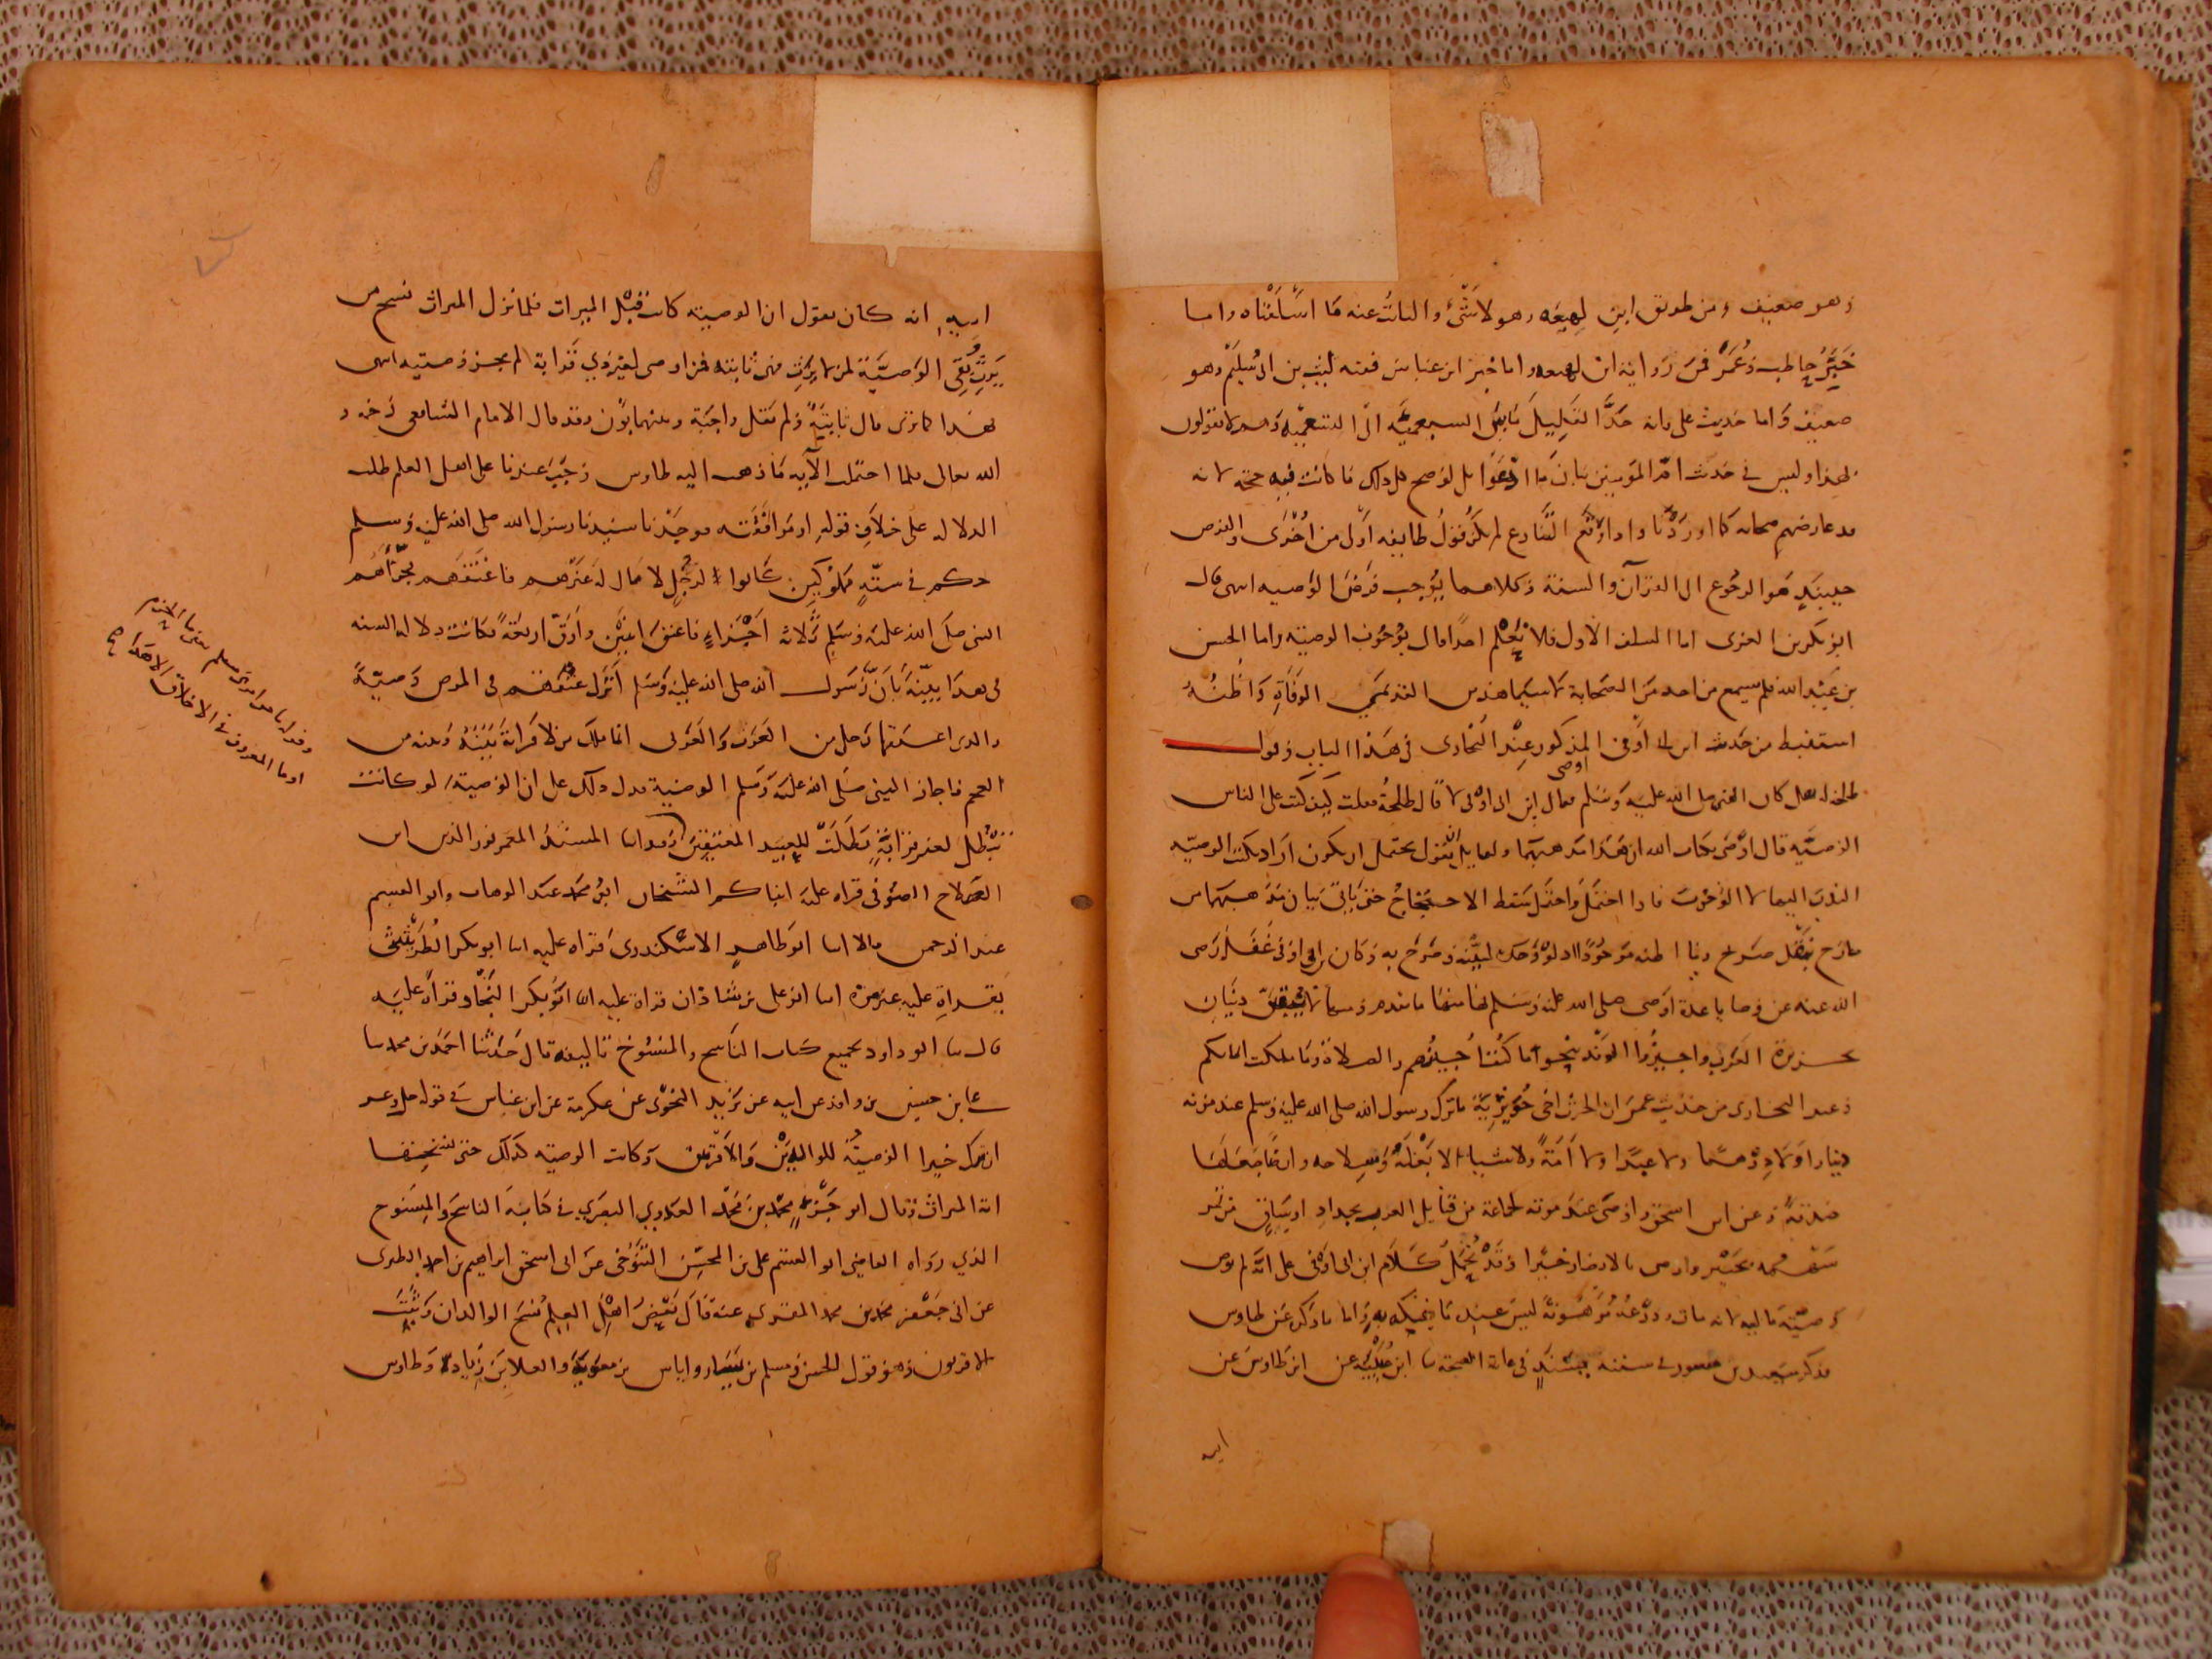 وهو ضعيف ومن طريق ابن لهيعة وهو لا شئ والثابت عنه ما اسلفناه واما
خبر حاطب وعمر فمن رواية ابن لهيعه واما خبر ابن عباس ففيه ليث بن ابى سليم وهو
ضعيف واما حديث على فانه حد القليل ما بين السبعميه الى التسعميه وهم لا يقولون
بهذا وليس فى حديث ام المؤمنين بيان ما ادعوا بل لو صح كل ذلك ما كانت فيه حجة لانه
قد عارضهم صحابه كما اوردنا واذا وقع التنازع لم يكن قول طايفه اولى من اخرى والفرض
حينئذ هو الرجوع الى القرآن والسنة وكلاهما يوجب فرض الوصيه انتهى قال
ابو بكر بن العربى اما السلف الاول فلا نعلم احدا قال بوجوب الوصية واما
بن عبد الله فلم يسمع من احد من الصحابة لا سيما هذين القديمي الوفاة واظنه
استنبط من حديث ابن ابى اوفى المذكور عند البخارى فى هذا الباب وقول
طلحة له هل كان النبى صلى الله عليه وسلم اوصى فقال ابن ابى اوفى لا قال طلحة فقلت كيف كتب على الناس
الوصية قال اوصى بكتاب الله ان هذا مذهبهما ولقايل ان يقول يحتمل ان يكون اراد بكتب الوصية
الندب اليها لا الوجوب فاذا احتمل واحتمل سقط الاحتجاج حتى ياتى بيان مذهبهما من
خارج بنقل صريح
الله عنه عن وصايا عدة اوصى صلى الله عليه وسلم بها منها ما
جزيرة العرب واجيزوا الوفد بنحو ما كنت اجيزهم والصلاة وما ملكت ايمانكم
وعند البخارى من حديث عمرو بن الحرث اخى جويرية ما ترك رسول الله صلى الله عليه وسلم عند موته
دينارا ولا درهما ولا عبدا ولا أمة ولا شيئا الا بغلته وسلاحه وارضا جعلها
صدقة وعن ابن اسحق واوصى عند موته لجماعة من قبايل العرب بجداد
سهمه بخيبر واوصى بالانصار خيرا وقد يحمل كلام ابن ابى اوفى على انه لم يوص
وصية مالية لانه مات ودرعه مرهونة ليس عنده ما يفتكه به واما ما ذكر عن طاوس
فذكر سعيد بن منصور فى سننه بسند فى غاية الصحة ابن عيينة عن ابن طاوس عن
ابيه
ابيه انه كان يقول ان الوصية كانت قبل الميراث فلما نزل الميراث نسخ من
يرث وبقى الوصية لمن لا يرث فهى ثابتة فمن اوصى لغير ذي قرابة لم يجز وصيته انتهى
فهذا كما ترى قال ثابتة ولم يقل واجبة وبينهما بون وقد قال الامام الشافعى رحمه
الله تعالى فلما احتملت الآية ما ذهب اليه طاوس وجب عندنا على اهل العلم طلب
الدلالة على خلاف قوله او موافقته فوجدنا سيدنا رسول الله صلى الله عليه وسلم
حكم فى ستة مملوكين كانوا لرجل لا مال له غيرهم فاعتقهم فجزأهم
النبى صلى الله عليه وسلم ثلاثة اجزاء فاعتق اثنين وارق اربعة فكانت دلالة السنه
فى هذا بينة بأن رسول الله صلى الله عليه وسلم انزل عتقهم فى المرض وصية
والذى اعتقهم رجل من العرب والعربى انما يملك من لا قرابة بينه وبينه من
العجم فاجاز النبى صلى الله عليه وسلم الوصية فدل ذلك على ان الوصية لو كانت
تبطل لغير قرابة بطلت للعبيد المعتقين وقد انا المسند المعمر نور الدين ابن
الصلاح الصوفى قراه عليه انباكم الشيخان ابو محمد عبد الوهاب وابو القسم
عبد الرحمن قالا انا ابو طاهر الاسكندرى قراه عليه انا ابو بكر الطريثيثى
بقراة عليه غير مرة انا ابو على بن شاذان قراة عليه انا ابو بكر النجاد قراه عليه
قال نا ابو داود بجميع كتاب الناسخ والمنسوخ تاليفه قال حدثنا احمد بن محمد نا
على بن حسين بن واقد عن ابيه عن يزيد النحوى عن عكرمة عن ابن عباس فى قوله جل وعز
ان ترك خيرا الوصية للوالدين والاقربين وكانت الوصية كذلك حتى نسختها
اية الميراث وقال ابو محمد بن محمد البصري فى كتابه الناسخ والمنسوخ
الذي رواه القاضى ابو القسم على بن المحسن التنوخى عن ابى اسحق ابراهيم بن احمد الطبرى
عن ابى جعفر محمد بن محمد المقرى عنه قال بعض اهل العلم نسخ الوالدان وثبت
الاقربون وهو قول الحسن ومسلم بن يسار واياس بن معوية والعلا بن زياد وطاوس